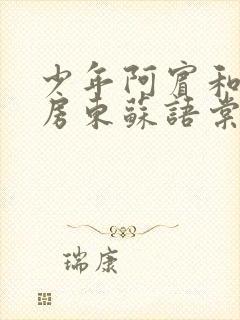 少年阿賓和
房東蘇語棠
瑞康